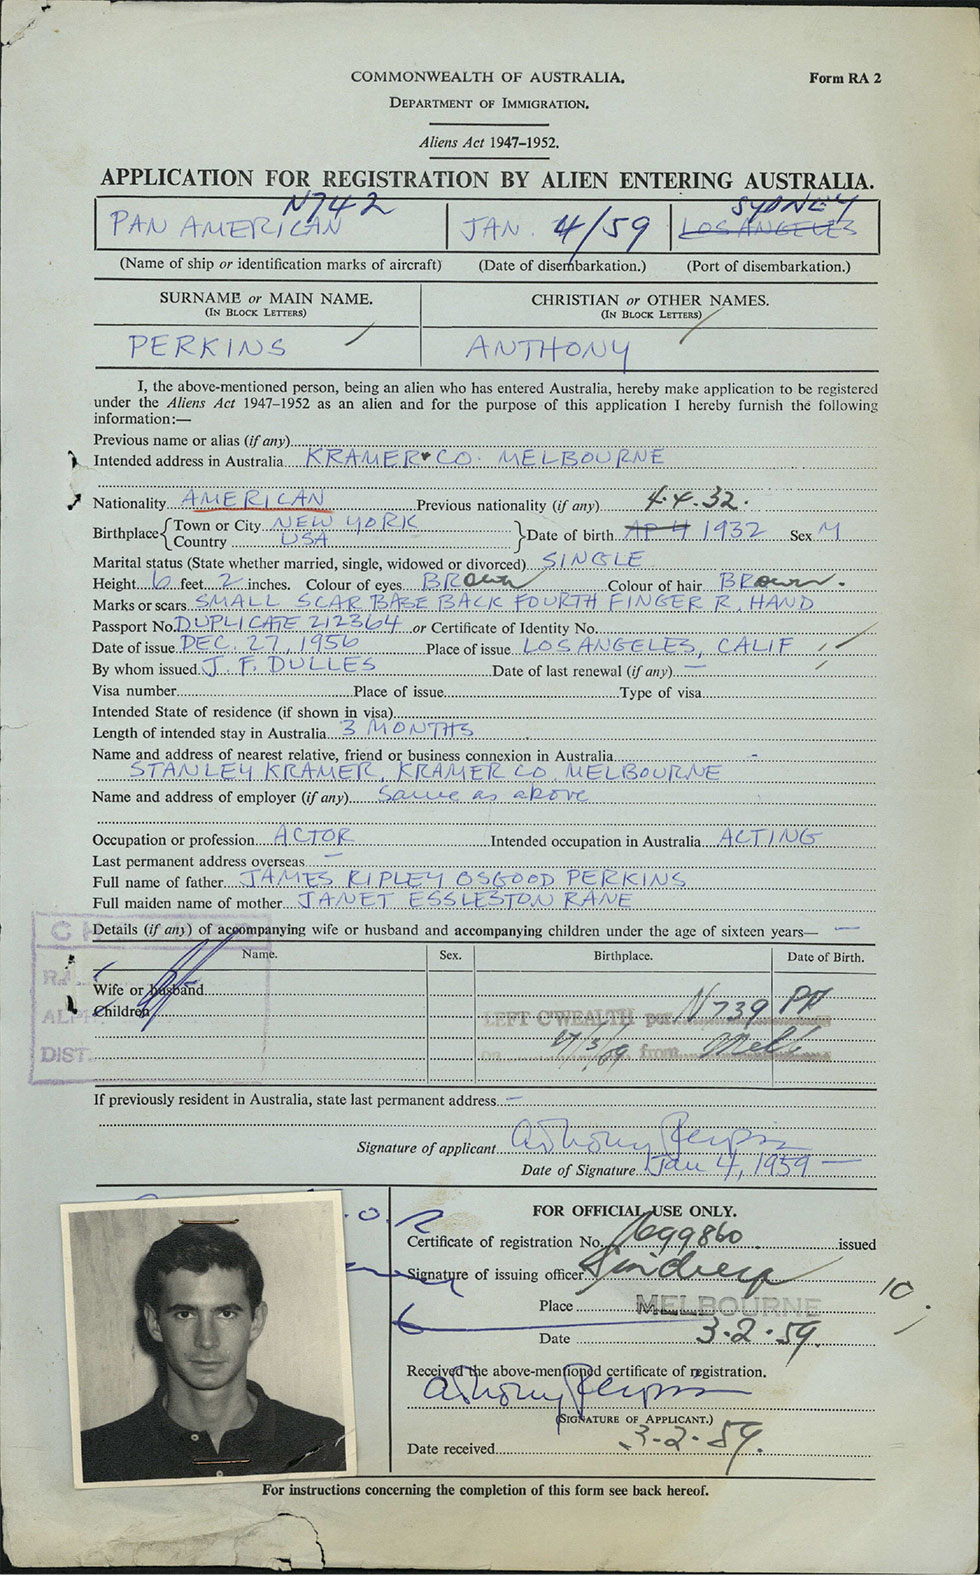 COMMONWEALTH OF AUSTRALIA.
Form RA 2
DEPARTMENT OF IMMIGRATION.
Aliens Act 1947–1952.
APPLICATION FOR REGISTRATION BY ALIEN ENTERING AUSTRALIA.
N742 SYDNEY
PAN AMERICAN JAN. 4/59 LOS ANGELES
(Name of ship or identification marks of aircraft) (Date of disembarkation.) (Port of disembarkation.)
SURNAME or MAIN NAME. CHRISTIAN or OTHER NAMES.
(IN BLOCK LETTERS) (IN BLOCK LETTERS)
PERKINS ANTHONY
I, the above-mentioned person, being an alien who has entered Australia, hereby make application to be registered
under the Aliens Act 1947–1952 as an alien and for the purpose of this application I hereby furnish the following
information:—
Previous name or alias (if any)
Intended address in Australia KRAMER & CO. MELBOURNE
Nationality AMERICAN Previous nationality (if any) 4.4.32.
Birthplace { Town or City NEW YORK } Date of birth AP 4 1932 Sex M
Country USA
Marital status (State whether married, single, widowed or divorced) SINGLE
Height 6 feet 2 inches. Colour of eyes BRown Colour of hair BRown.
Marks or scars SMALL SCAR BASE BACK FOURTH FINGER R. HAND
Passport No. DUPLICATE 212364 or Certificate of Identity No.
Date of issue DEC. 27, 1956 Place of issue LOS ANGELES, CALIF
By whom issued J. F. DULLES Date of last renewal (if any) —
Visa number Place of issue Type of visa
Intended State of residence (if shown in visa)
Length of intended stay in Australia 3 MONTHS
Name and address of nearest relative, friend or business connexion in Australia -
STANLEY KRAMER, KRAMER CO. MELBOURNE
Name and address of employer (if any) Same as above
Occupation or profession ACTOR Intended occupation in Australia ACTING
Last permanent address overseas —
Full name of father JAMES RIPLEY OSGOOD PERKINS
Full maiden name of mother JANET ESSLESTON RANE
Details (if any) of accompanying wife or husband and accompanying children under the age of sixteen years— —
Name. Sex. Birthplace. Date of Birth.
Wife or husband
Children
ALPH
DIST.
LEFT C'WEALTH per N739 PA
on 17/3/59 from Melb
If previously resident in Australia, state last permanent address —
Signature of applicant Anthony Perkins
Date of Signature Jan 4, 1959 —
FOR OFFICIAL USE ONLY.
Certificate of registration No. 699860 issued
Signature of issuing officer
10.
Place MELBOURNE
Date 3.2.59.
Received the above-mentioned certificate of registration.
Anthony Perkins
(SIGNATURE OF APPLICANT.)
Date received 3.2.59.
For instructions concerning the completion of this form see back hereof.